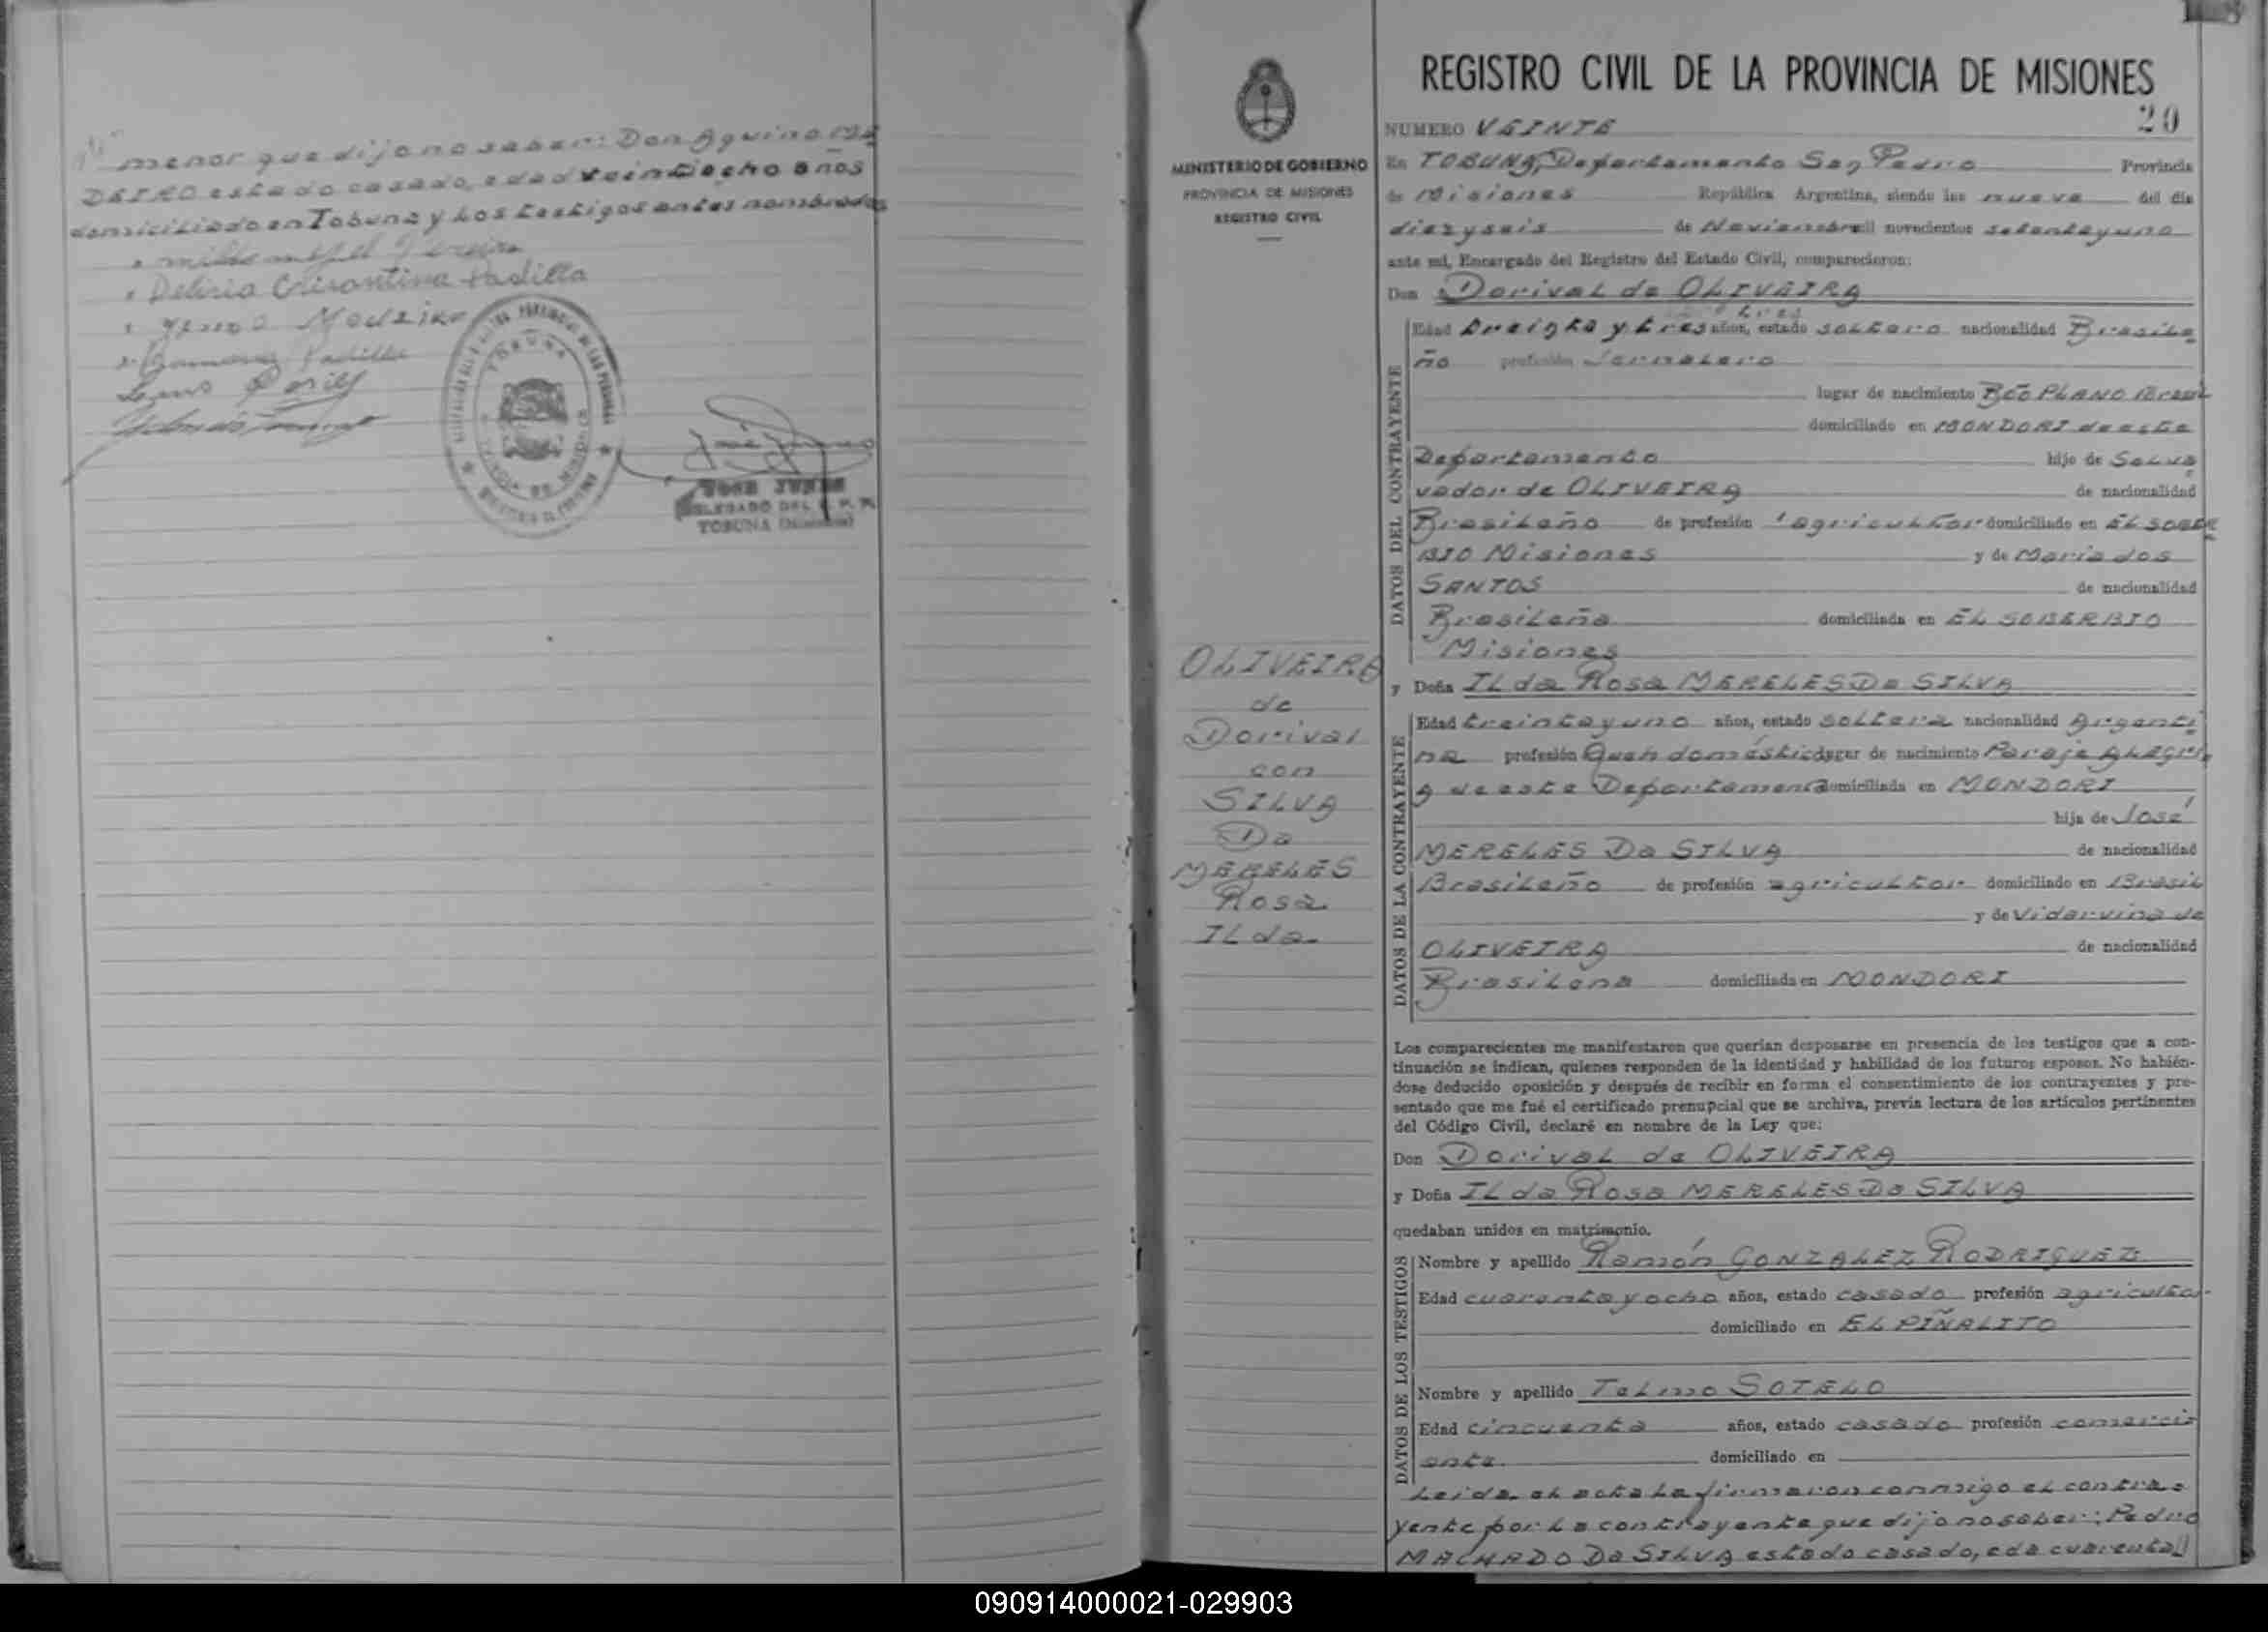 menor que dijo no saber: Don Aquino
estado casado, edad veintiocho años
domiciliado en Tobuna y los testigos antes nombrados
Padilla
TOBUNA
José Junes
JOSE JUNES
DELEGADO DEL R. P. P.
TOBUNA (Misiones)
MINISTERIO DE GOBIERNO
PROVINCIA DE MISIONES
REGISTRO CIVIL
OLIVEIRA
de
Dorival
con
SILVA
Da
MERELES
Rosa
ILda
REGISTRO CIVIL DE LA PROVINCIA DE MISIONES
20
NUMERO VEINTE
En TOBUNA, Departamento San Pedro Provincia
de Misiones República Argentina, siendo las nueve del día
diez y seis de Noviembre mil novecientos setenta y uno
ante mi, Encargado del Registro del Estado Civil, comparecieron:
Don Dorival de OLIVEIRA
DATOS DEL CONTRAYENTE
Edad treinta y tres años, estado soltero nacionalidad Brasile
ño profesión Jornalero
lugar de nacimiento PLANO Brasil
domiciliado en MONDORI de este
Departamento hijo de Salva
vador de OLIVEIRA de nacionalidad
Brasileño de profesión agricultor domiciliado en EL SOBER
BIO Misiones y de Maria dos
SANTOS de nacionalidad
Brasileña domiciliada en EL SOBERBIO
Misiones
y Doña ILda Rosa MERELES Da SILVA
DATOS DE LA CONTRAYENTE
Edad treinta y uno años, estado soltera nacionalidad Argenti
na profesión Queh domésticos lugar de nacimiento Paraje ALEGRI
A de este Departamento domiciliada en MONDORI
hija de José
MERELES Da SILVA de nacionalidad
Brasileño de profesión agricultor domiciliado en Brasil
y de Vidarvina de
OLIVEIRA de nacionalidad
Brasilena domiciliada en MONDORI
Los comparecientes me manifestaron que querían desposarse en presencia de los testigos que a con-
tinuación se indican, quienes responden de la identidad y habilidad de los futuros esposos. No habién-
dose deducido oposición y después de recibir en forma el consentimiento de los contrayentes y pre-
sentado que me fué el certificado prenupcial que se archiva, previa lectura de los artículos pertinentes
del Código Civil, declaré en nombre de la Ley que:
Don Dorival de OLIVEIRA
y Doña ILda Rosa MERELES Da SILVA
quedaban unidos en matrimonio.
DATOS DE LOS TESTIGOS
Nombre y apellido Ramón GONZALEZ RODRIGUEZ
Edad cuarenta y ocho años, estado casado profesión agricultor
domiciliado en EL PIÑALITO
Nombre y apellido Telmo SOTELO
Edad cincuenta años, estado casado profesión comerci
ante. domiciliado en
Leida el acta la firmaron conmigo el contra
yente por la contrayente que dijo no saber: Pedro
MACHADO Da SILVA estado casado, eda cuarenta
090914000021-029903